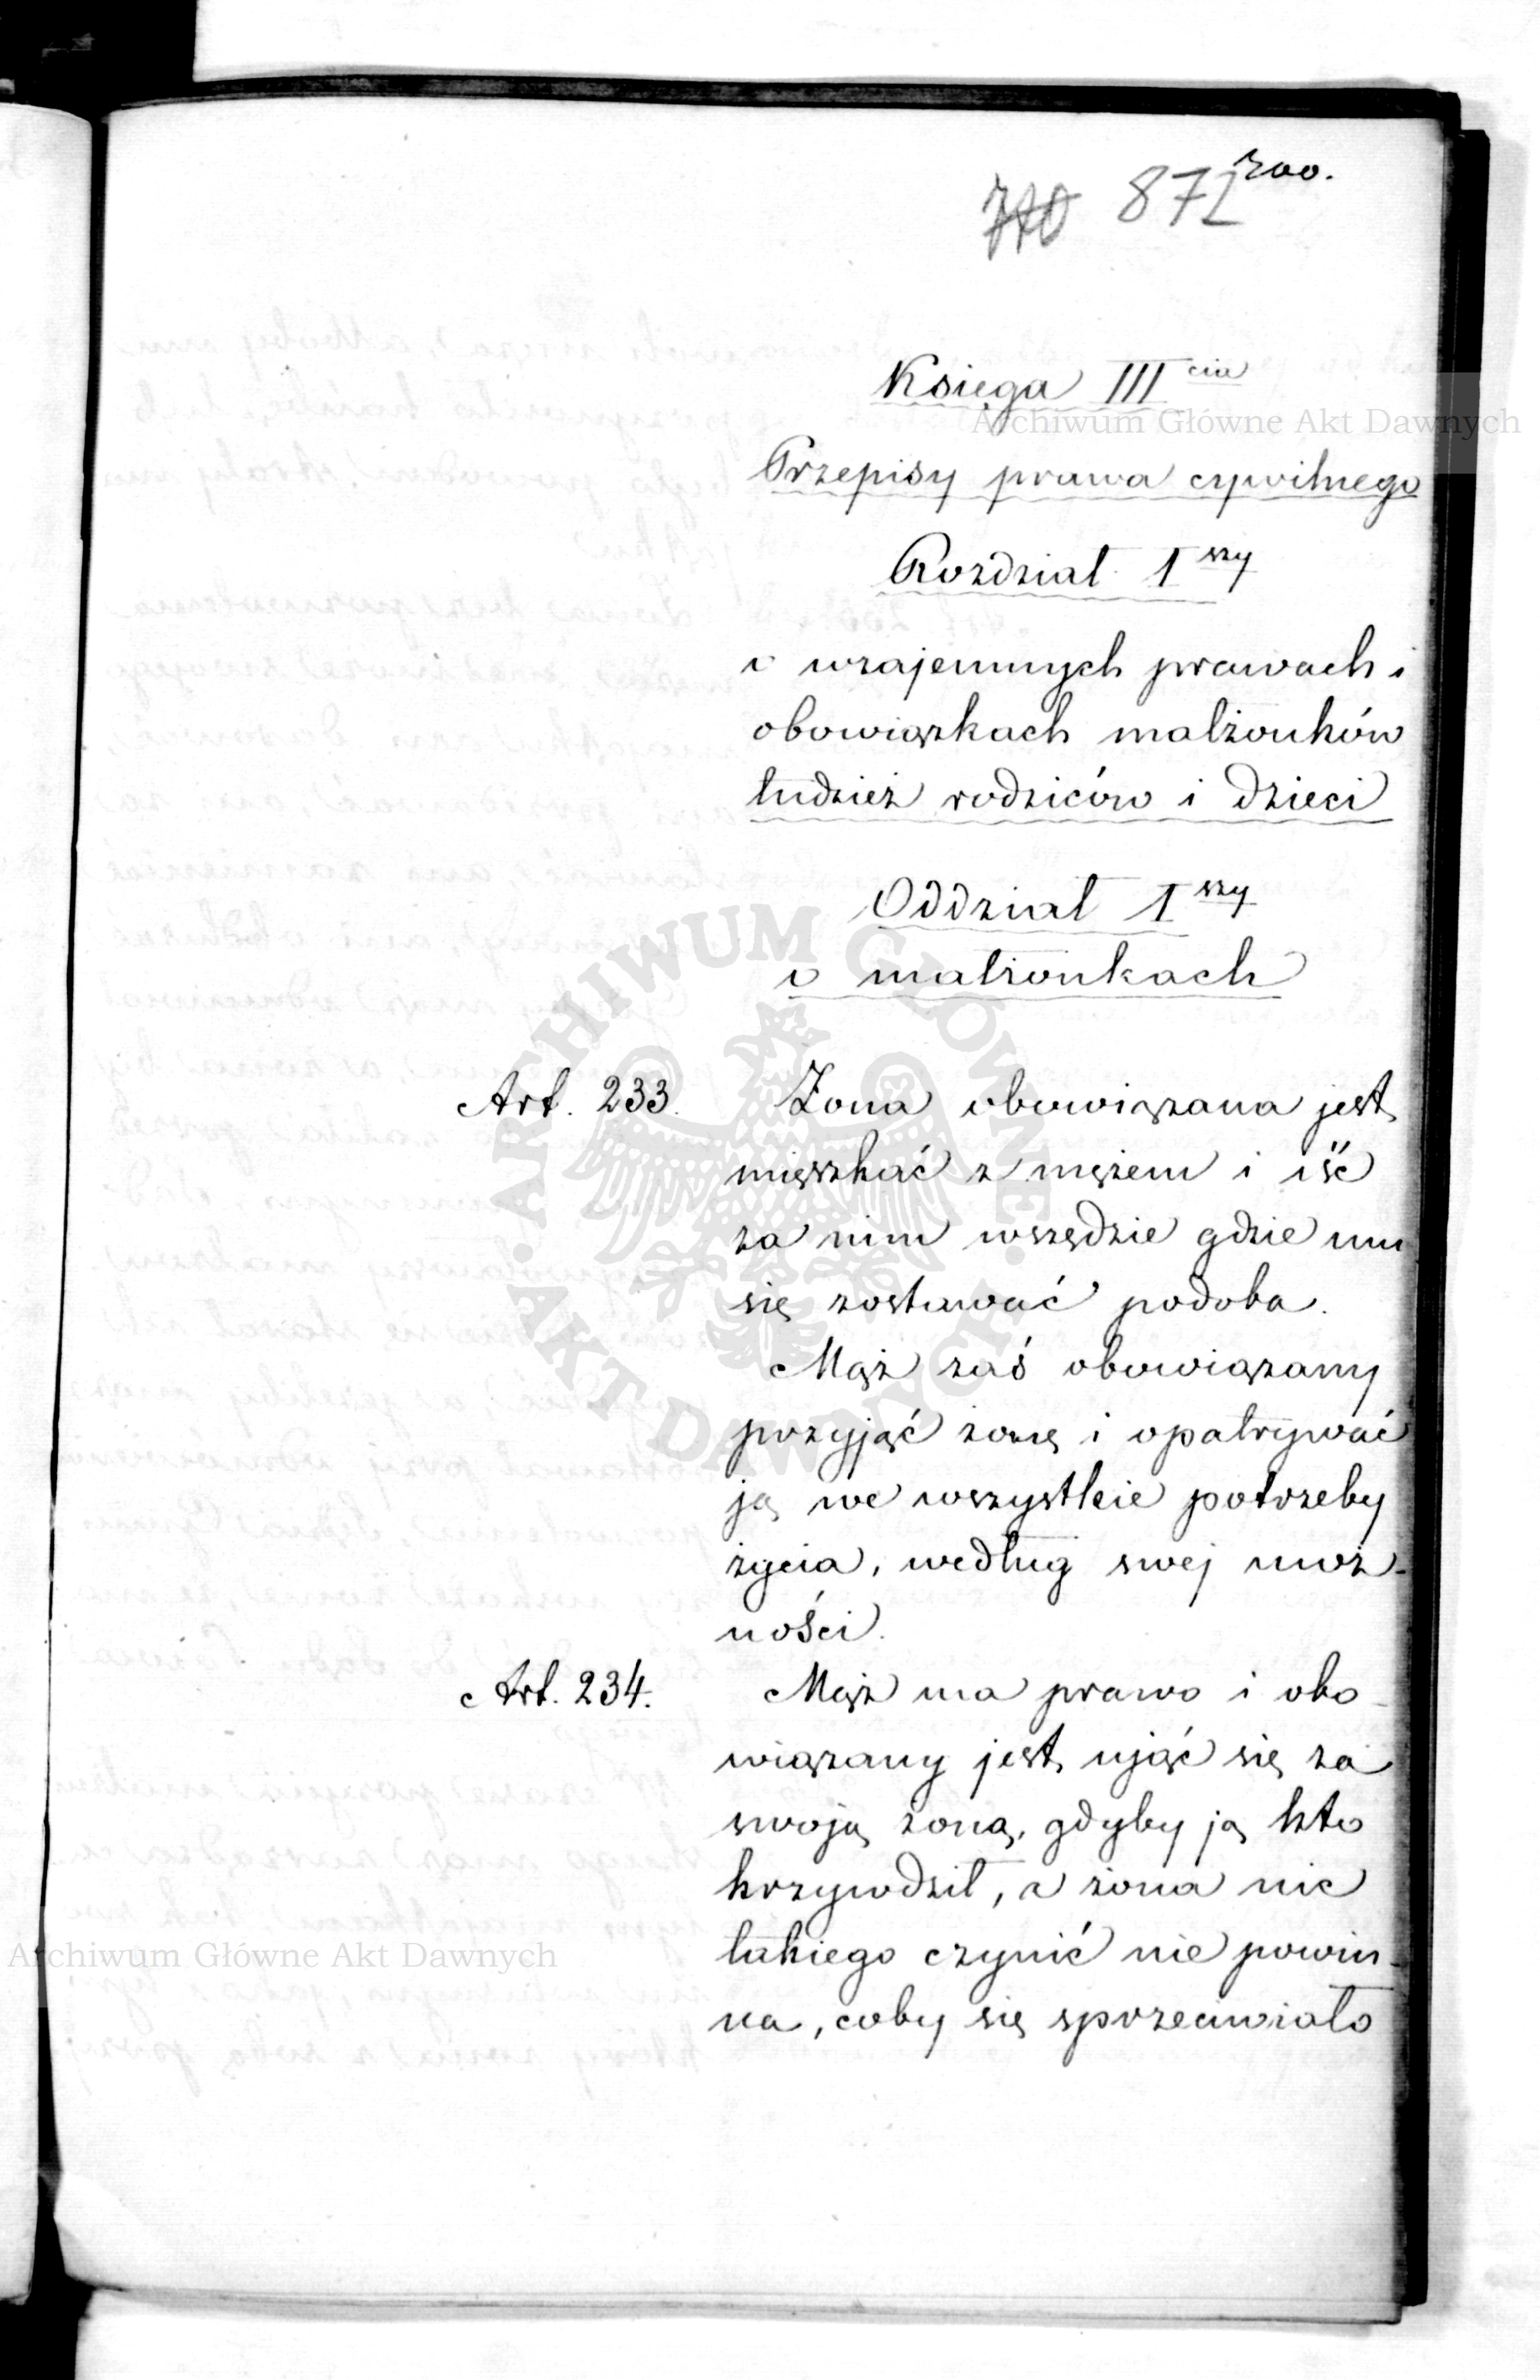 200.
770 872
Księga III cia
Archiwum Główne Akt Dawnych
Przepisy prawa cywilnego
Rozdział 1 szy
o wzajemnych prawach i
obowiązkach małżonków
tudzież rodziców i dzieci
Oddział 1 szy
o małżonkach
ARCHIWUM GŁÓWNE AKT DAWNYCH
Art. 233. Żona obowiązana jest
mięszkać z mężem i iść
za nim wszędzie gdzie mu
się zostawać podoba.
Mąż zaś obowiązany
przyjąć żonę i opatrywać
ją we wszystkie potrzeby
życia, według swej moż-
ności.
Art. 234. Mąż ma prawo i obo-
wiązany jest ująć się za
swoją żoną, gdyby ją kto
krzywdził, a żona nic
takiego czynić nie powin-
Archiwum Główne Akt Dawnych
na, coby się sprzeciwiało